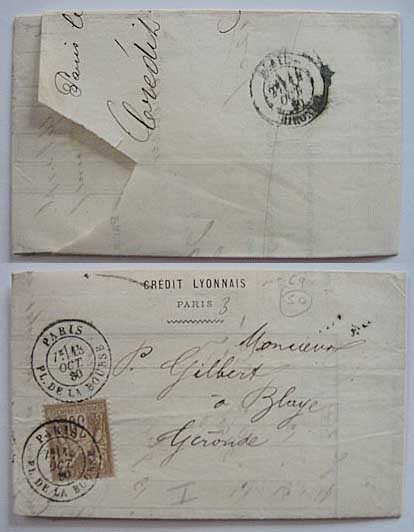 Paris le
Crédit
BLAYE
OCT
80
GIRONDE
CRÉDIT LYONNAIS
PARIS
3
PARIS
OCT
80
PL. DE LA BOURSE
Monsieur
P. Gilbert
à Blaye
Gironde
30
PARIS
OCT
80
PL. DE LA BOURSE